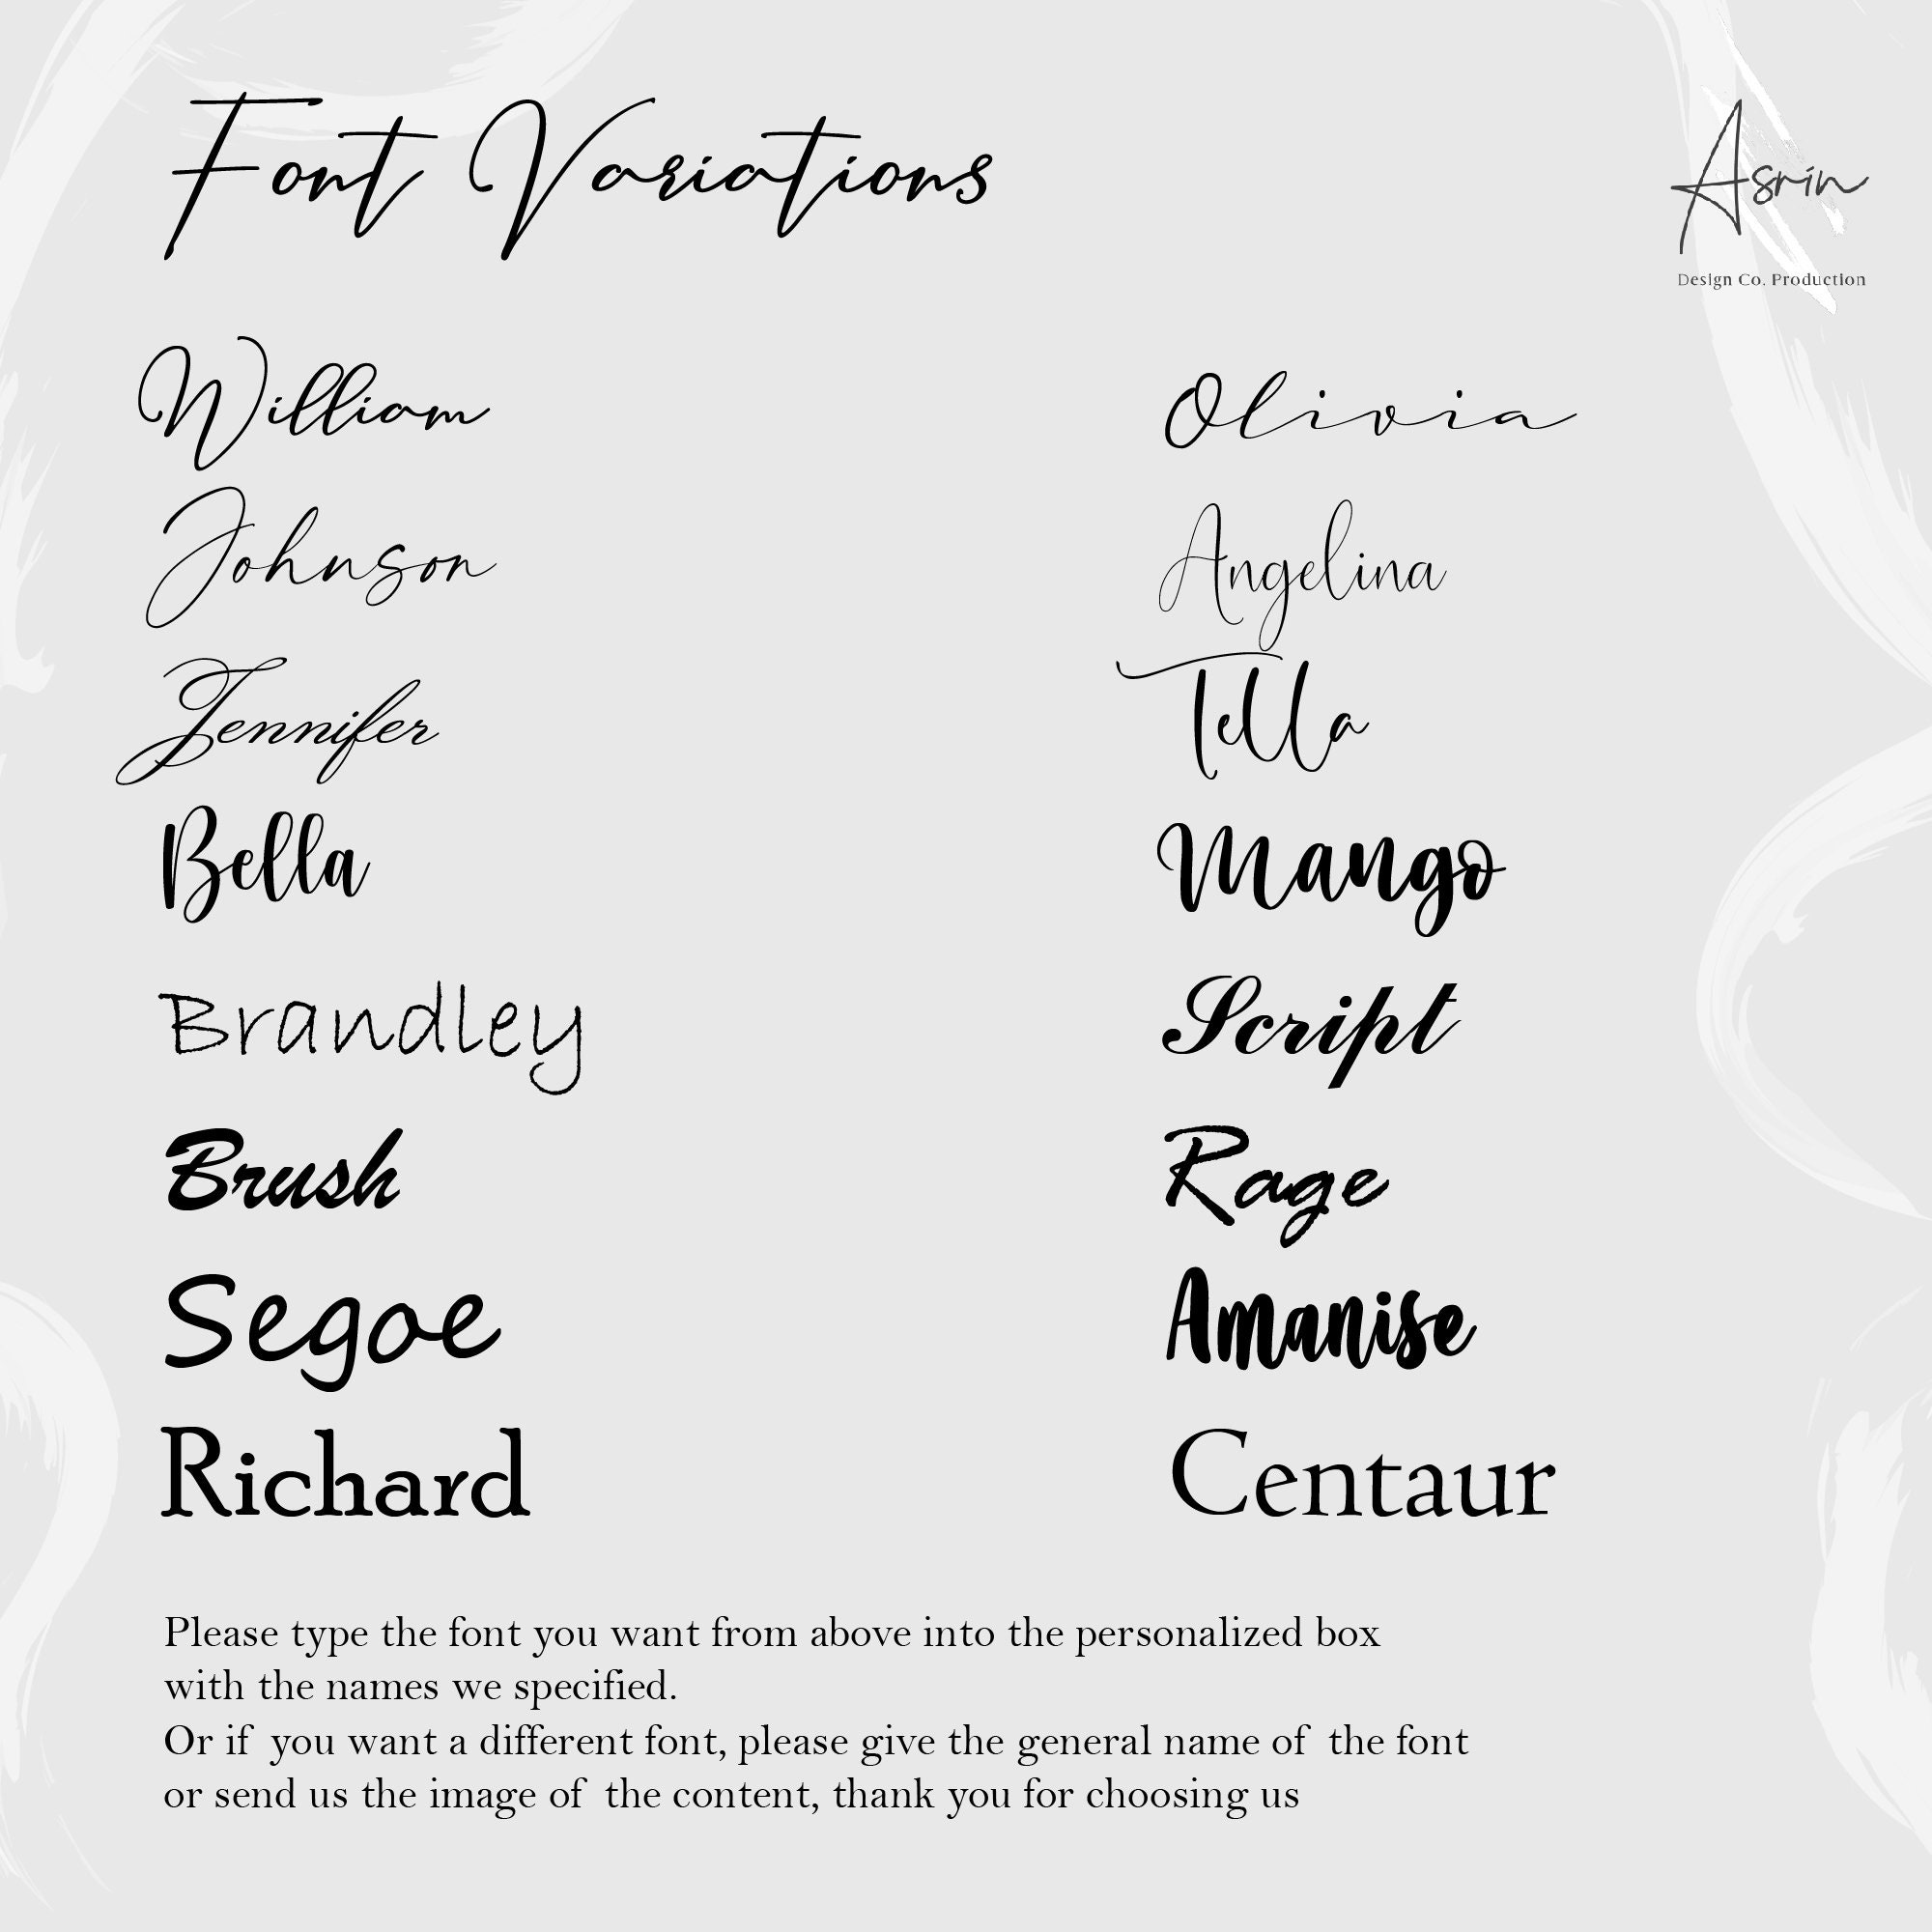 Font Variations
Asrin
Design Co. Production
William
Olivia
Johnson
Angelina
Jennifer
Tella
Bella
Mango
Brandley
Script
Brush
Rage
Segoe
Amanise
Richard
Centaur
Please type the font you want from above into the personalized box
with the names we specified.
Or if you want a different font, please give the general name of the font
or send us the image of the content, thank you for choosing us